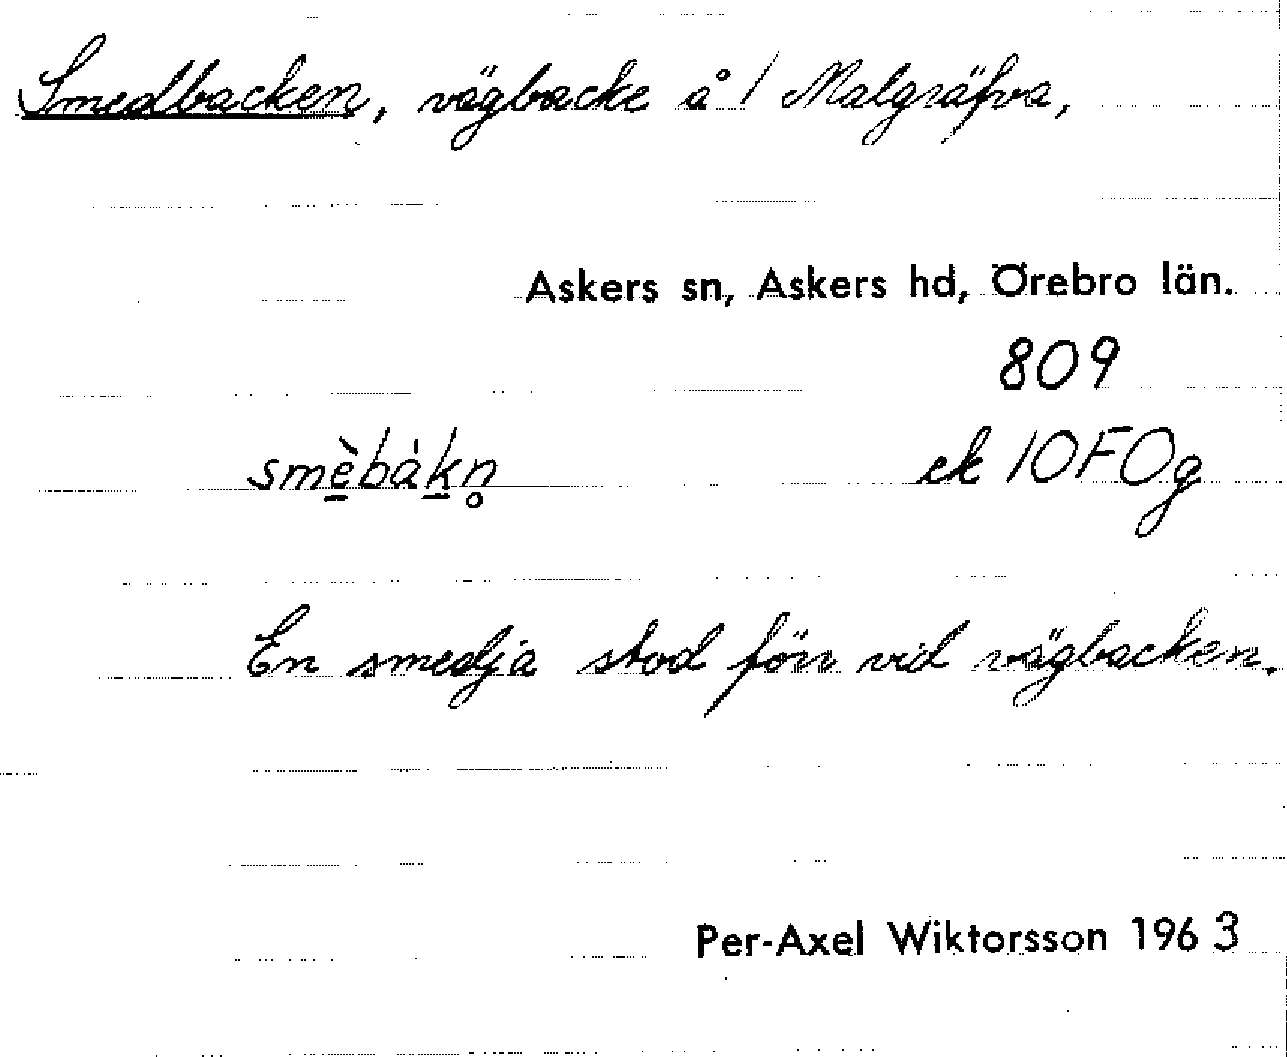 Smedbacken, vägbacke å / Malgräfva,
Askers sn, Askers hd, Örebro län.
809
smè̱báḵn̥ ek 10F0g
En smedja stod förr vid vägbacken.
Per-Axel Wiktorsson 1963